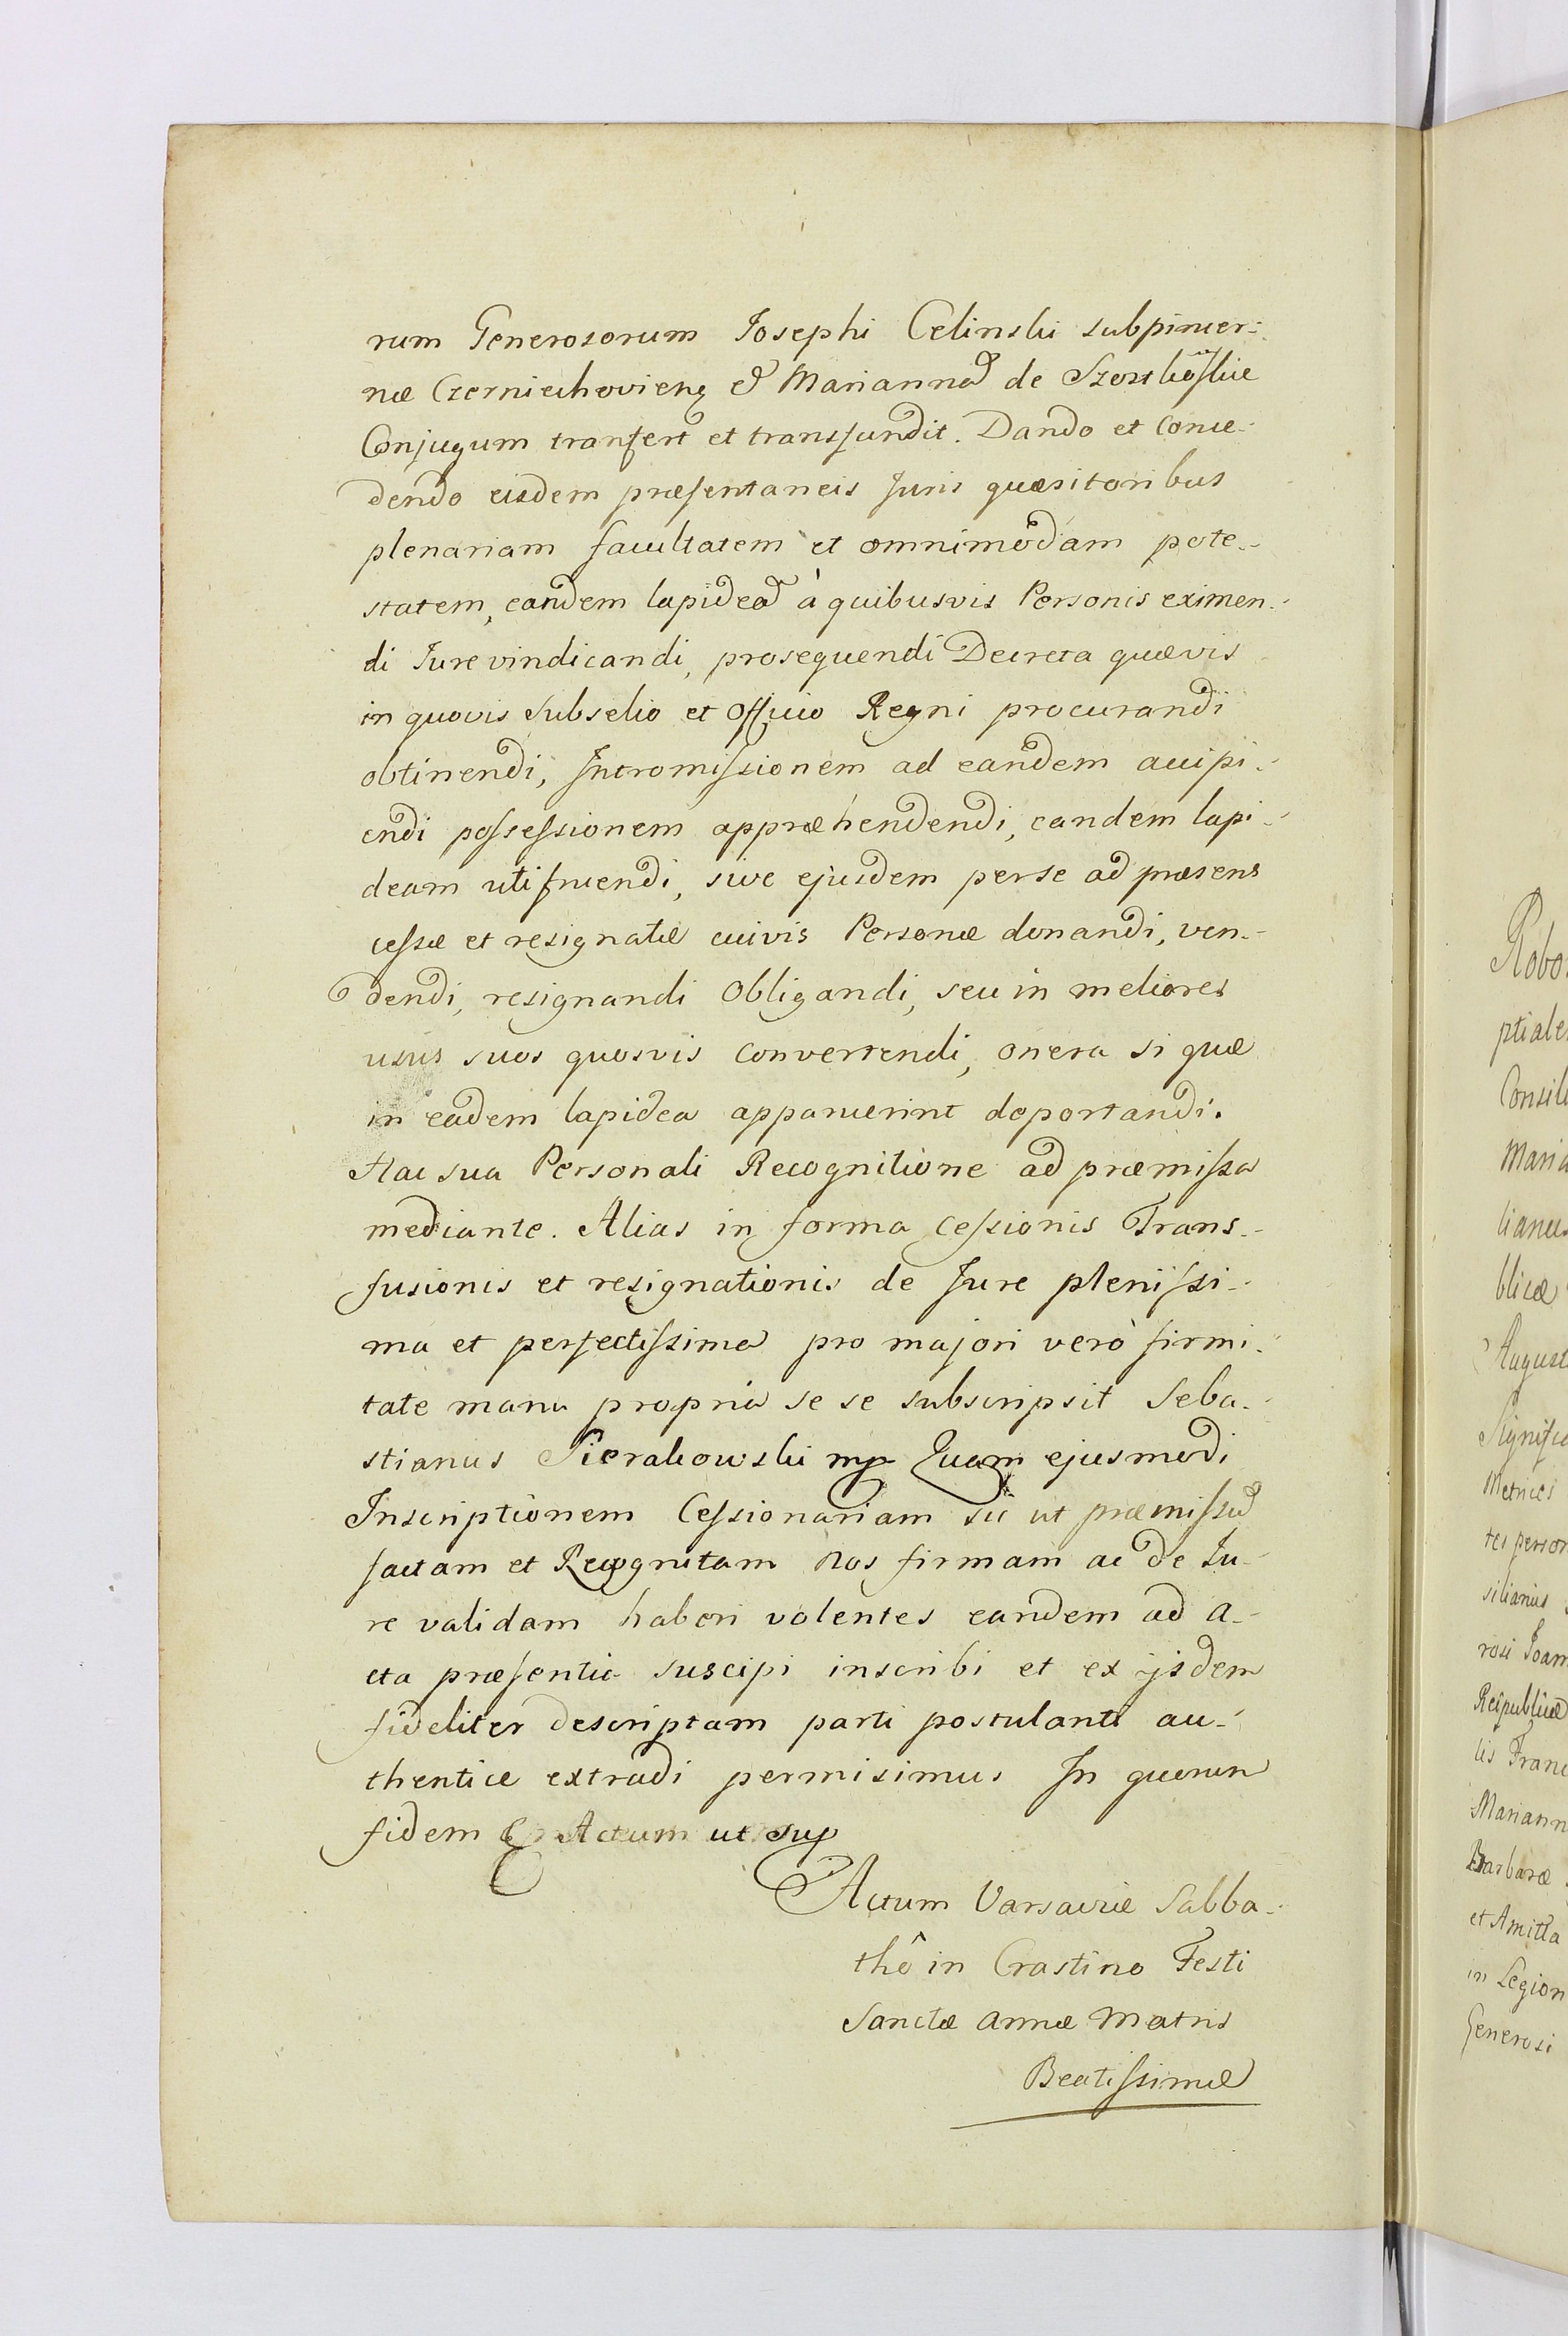 rum Generosorum Josephi Celinski subpincer-
næ Czerniechoviens et Mariannæ de
Conjugum tranfert et transfundit. Dando et conce-
dendo eisdem præsentaneis Juris quæsitoribus
plenariam facultatem et omnimodam pote-
statem, eandem lapideã à quibusvis Personis eximen-
di Jure vindicandi, prosequendi Decreta quævis
in quovis Subselio et Officio Regni procurandi
obtinendi, Intromissionem ad eandem accipi-
endi possessionem appræhendendi, eandem lapi-
deam utifruendi, sive ejusdem per se ad præsens
cessæ et resignatæ cuivis Personæ donandi, ven-
dendi, resignandi Obligandi, seu in meliores
usus suos quosvis convertendi, onera si quæ
in eadem lapidea apparuerint deportandi.
Hac sua Personali Recognitione ad præmissa
mediante. Alias in forma Cessionis Trans-
fusionis et resignationis de Jure plenissi-
ma et perfectissima pro majori verò firmi-
tate manu propria se se subscripsit Seba-
stianus Sierakowski mp Quam ejusmodi
Inscriptionem Cessionariam sic ut præmissũ
factam et Recognitam Nos firmam ac de Ju-
re validam haberi volentes eandem ad a-
cta præsentia suscipi inscribi et ex ijsdem
fideliter descriptam parti postulanti au-
thentice extradi permisimus In quorum
fidem Actum ut sup
Actum Varsaviæ Sabba-
thô in Crastino Festi
Sanctæ Annæ Matris
Beatissimæ
Robo
ptiale
Consili
Maria
lianus
blicæ
August
Signific
Metrices
tes person
silianus
rosi Joan
Reipublicæ
lis Franc
Mariann
Barbaræ
et Amitta
in Legion
Generosi